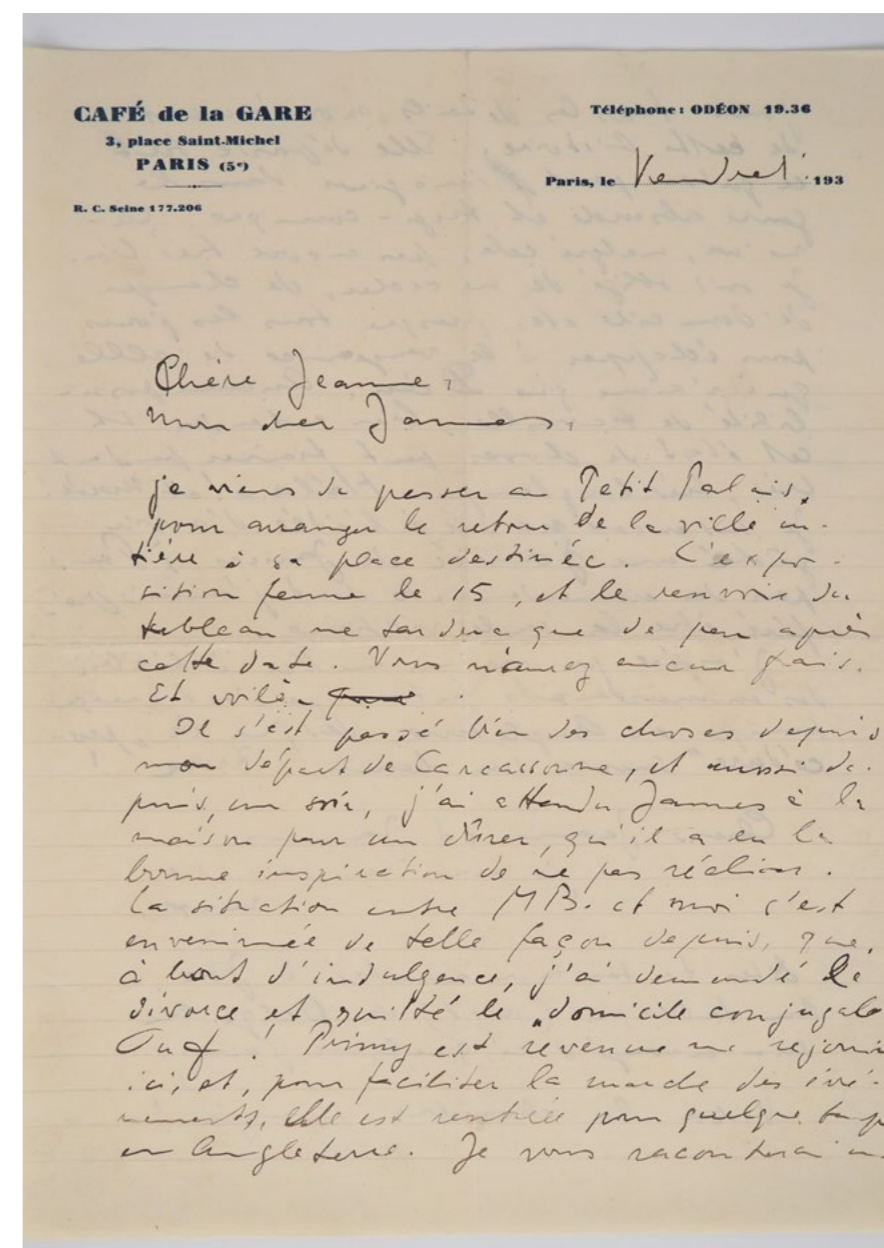 CAFÉ de la GARE
3, place Saint-Michel
PARIS (5e)
R. C. Seine 177.206
Téléphone : ODÉON 19.36
Paris, le Vendredi 193
Chère Jeanne,
mon cher James,
je viens de passer au Petit Palais,
pour arranger le retour de la ville en-
tière à sa place destinée. L'expo-
sition ferme le 15, et le renvoie du
tableau ne tardera que de peu après
cette date. Vous n'aurez aucun frais.
Et voilà
Il s'est passé bien des choses depuis
mon départ de Carcassonne, et aussi de-
puis, un soir, j'ai attendu James à la
maison pour un dîner, qu'il a eu la
bonne inspiration de ne pas réaliser.
La situation entre MB. et moi s'est
envenimée de telle façon depuis, que,
à bout d'indulgence, j'ai demandé le
divorce et quitté le „domicile conjugale
Ouf ! Primmy est revenue me rejoindre
ici, et, pour faciliter la marche des évé-
nements, elle est rentrée pour quelque temps
en Angleterre. Je vous raconterai un